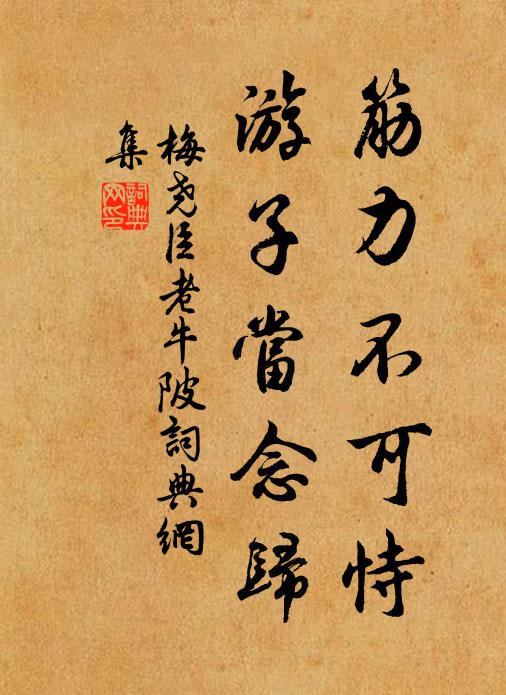 筋力不可恃
游子當念歸
梅尧臣老牛陂詞典網
集
詞典網印